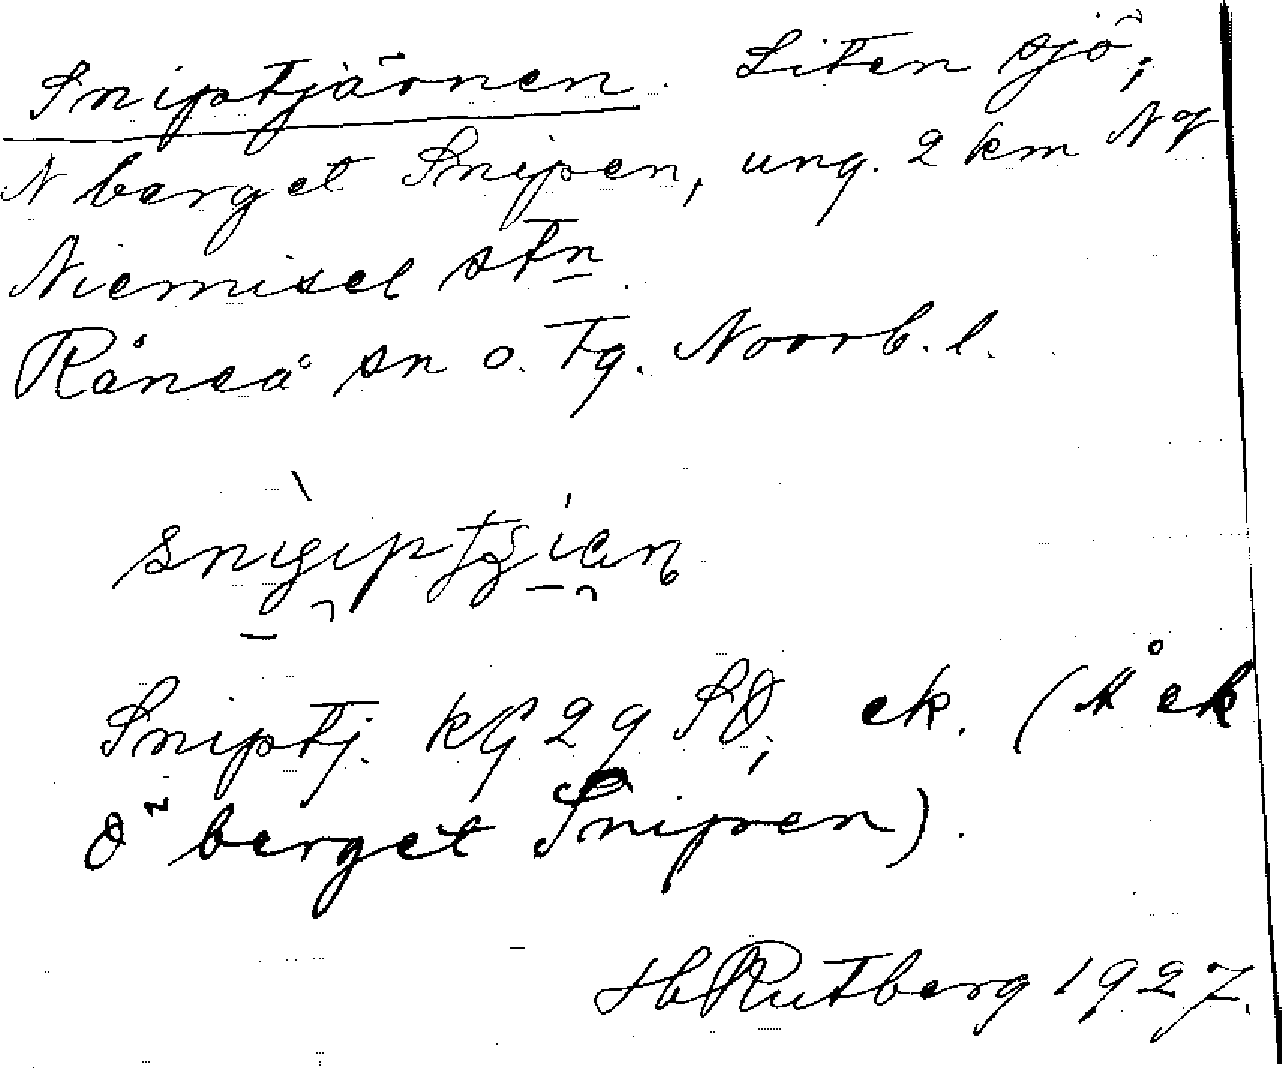 Sniptjärnen. Liten sjö,
N berget Snipen, ung. 2 km N g
Niemisel stn.
Råneå sn o. tg. Norrb. l.
Sniptj. kg 29 SO, ek. (
berget Snipen).
H Rutberg 1927.